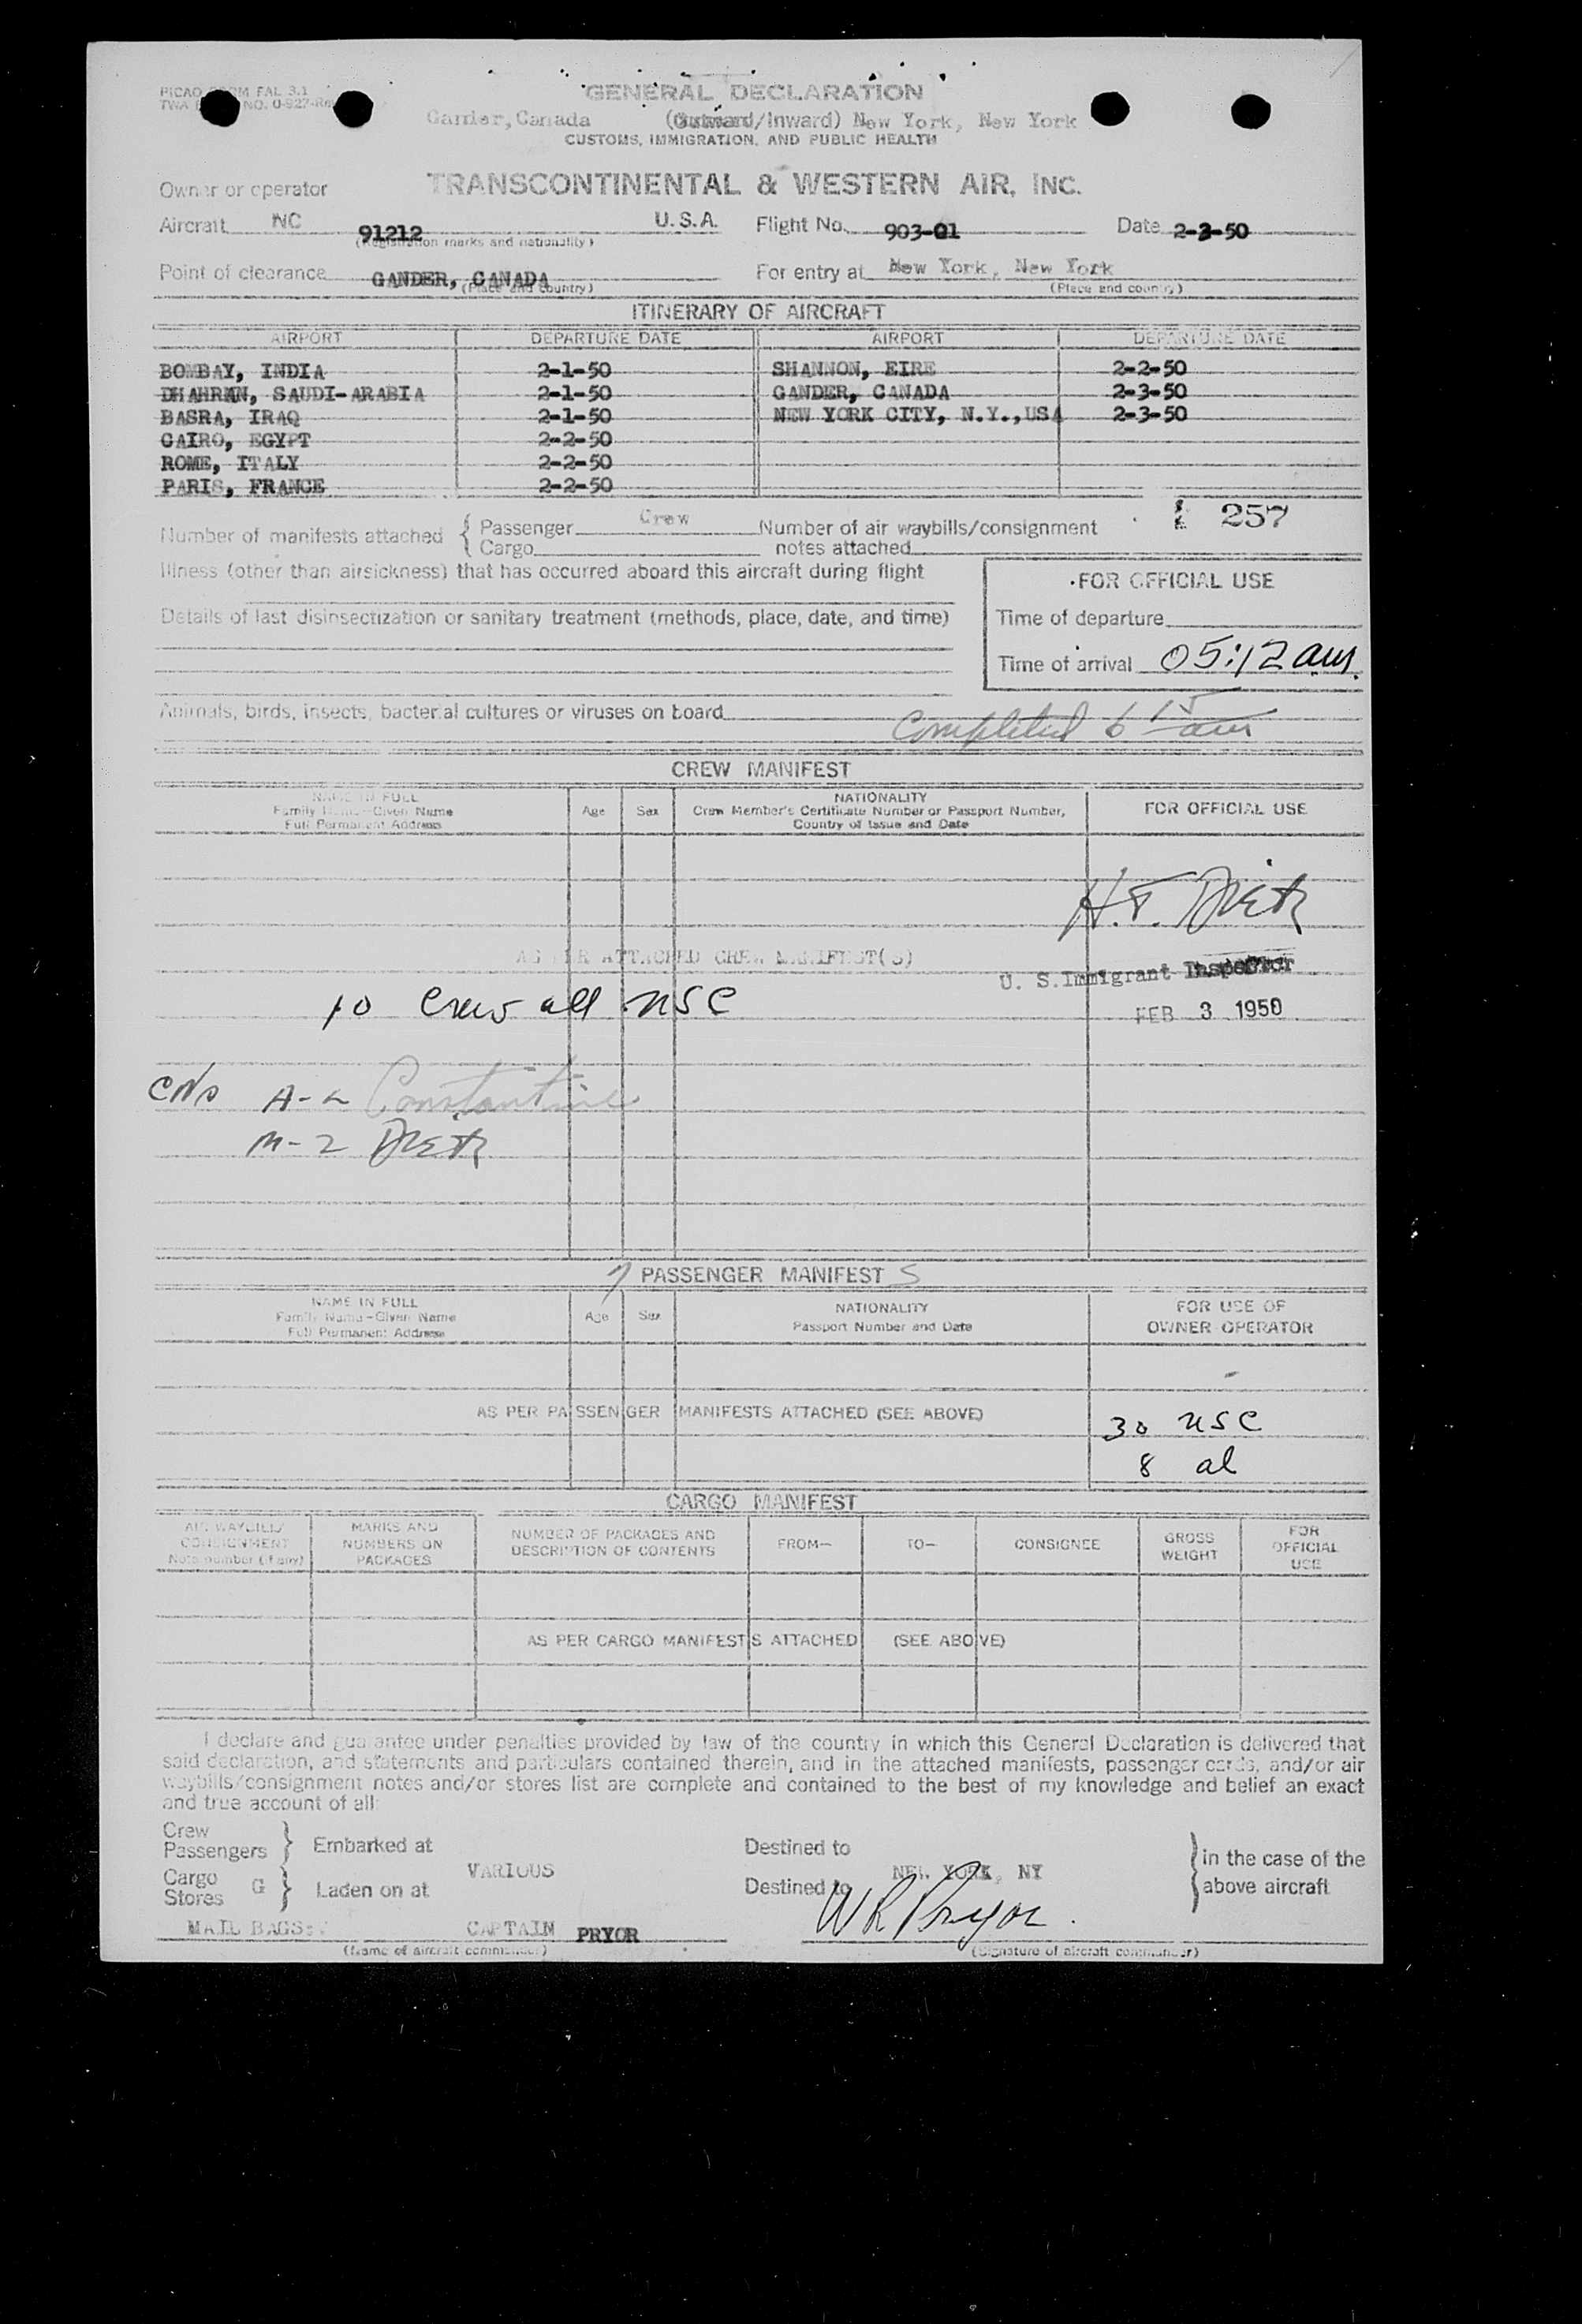 PICAO FORM FAL 3.1
TWA NO. 0-927-Rev
GENERAL DECLARATION
Gander, Canada (Outward/Inward) New York, New York
CUSTOMS, IMMIGRATION, AND PUBLIC HEALTH
Owner or operator TRANSCONTINENTAL & WESTERN AIR, INC.
Aircraft NC 91212 U.S.A. Flight No. 903-01 Date 2-3-50
(Registration marks and nationality)
Point of clearance GANDER, CANADA For entry at New York, New York
(Place and country) (Place and country)
ITINERARY OF AIRCRAFT
AIRPORT DEPARTURE DATE AIRPORT DEPARTURE DATE
BOMBAY, INDIA 2-1-50 SHANNON, EIRE 2-2-50
DHAHRAN, SAUDI-ARABIA 2-1-50 GANDER, CANADA 2-3-50
BASRA, IRAQ 2-1-50 NEW YORK CITY, N.Y.,USA 2-3-50
CAIRO, EGYPT 2-2-50
ROME, ITALY 2-2-50
PARIS, FRANCE 2-2-50
257
Number of manifests attached { Passenger Crew Number of air waybills/consignment
Cargo notes attached
Illness (other than airsickness) that has occurred aboard this aircraft during flight
FOR OFFICIAL USE
Details of last disinsectization or sanitary treatment (methods, place, date, and time)
Time of departure
Time of arrival 05:12 am.
Animals, birds, insects, bacterial cultures or viruses on board
Completed 6 15 am
CREW MANIFEST
NAME IN FULL
Family Name-Given Name
Full Permanent Address
Age
Sex
NATIONALITY
Crew Member's Certificate Number or Passport Number,
Country of Issue and Date
FOR OFFICIAL USE
H.F. Dietz
AS PER ATTACHED CREW MANIFEST(S)
U. S. Immigrant Inspector
10 Crew all USC
FEB 3 1950
A-2 Constantine
M-2 Dietz
7 PASSENGER MANIFEST S
NAME IN FULL
Family Name-Given Name
Full Permanent Address
Age
Sex
NATIONALITY
Passport Number and Date
FOR USE OF
OWNER-OPERATOR
AS PER PASSENGER MANIFESTS ATTACHED (SEE ABOVE)
30 USC
8 al
CARGO MANIFEST
AIR WAYBILL/
CONSIGNMENT
Note number (if any)
MARKS AND
NUMBERS ON
PACKAGES
NUMBER OF PACKAGES AND
DESCRIPTION OF CONTENTS
FROM—
TO—
CONSIGNEE
GROSS
WEIGHT
FOR
OFFICIAL
USE
AS PER CARGO MANIFESTS ATTACHED (SEE ABOVE)
I declare and guarantee under penalties provided by law of the country in which this General Declaration is delivered that
said declaration, and statements and particulars contained therein, and in the attached manifests, passenger cards, and/or air
waybills/consignment notes and/or stores list are complete and contained to the best of my knowledge and belief an exact
and true account of all:
Crew
Passengers } Embarked at Destined to
VARIOUS NEW YORK, NY
Cargo
Stores G } Laden on at Destined to
} in the case of the
above aircraft
MAIL BAGS: CAPTAIN PRYOR W R Pryor
(Name of aircraft commander) (Signature of aircraft commander)